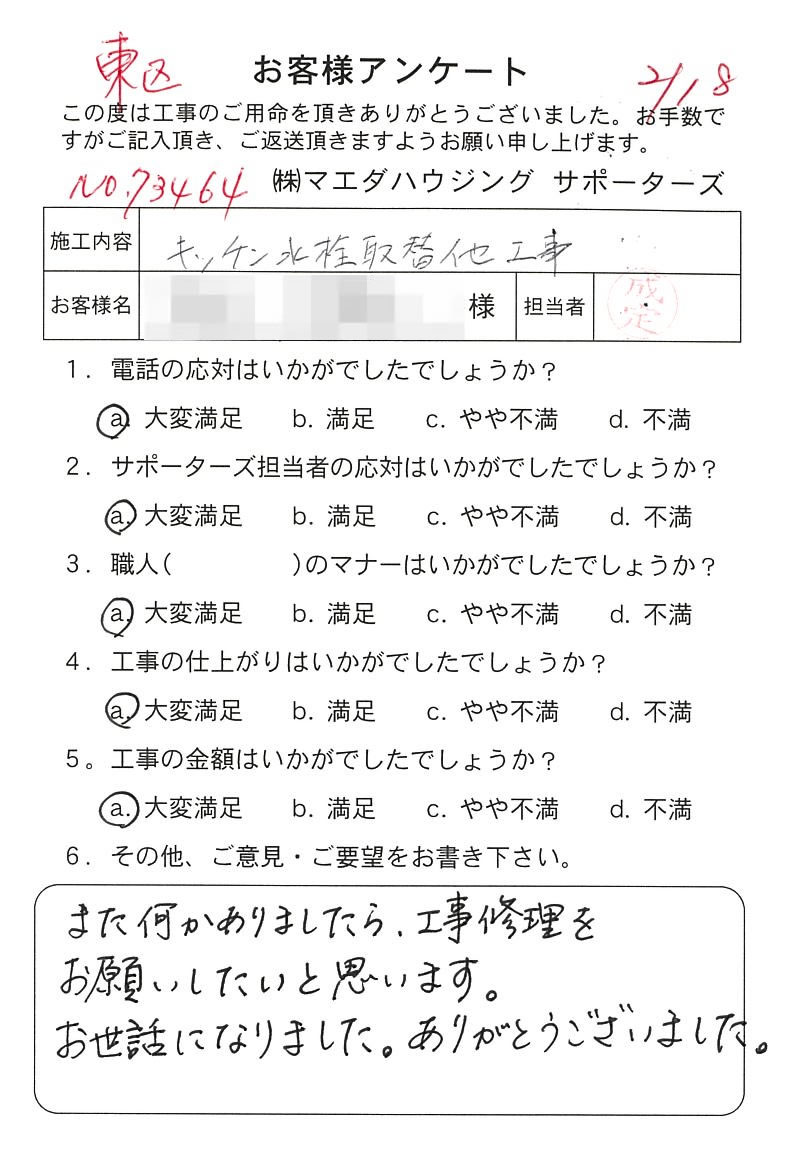 東区 お客様アンケート 2/18
この度は工事のご用命を頂きありがとうございました。お手数で
すがご記入頂き、ご返送頂きますようお願い申し上げます。
NO.73464 ㈱マエダハウジング サポーターズ
施工内容 キッチン水栓取替他工事
お客様名 様 担当者 成定
1. 電話の応対はいかがでしたでしょうか?
a. 大変満足 b. 満足 c. やや不満 d. 不満
2. サポーターズ担当者の応対はいかがでしたでしょうか?
a. 大変満足 b. 満足 c. やや不満 d. 不満
3. 職人( )のマナーはいかがでしたでしょうか?
a. 大変満足 b. 満足 c. やや不満 d. 不満
4. 工事の仕上がりはいかがでしたでしょうか?
a. 大変満足 b. 満足 c. やや不満 d. 不満
5。工事の金額はいかがでしたでしょうか?
a. 大変満足 b. 満足 c. やや不満 d. 不満
6. その他、ご意見・ご要望をお書き下さい。
また何かありましたら、工事修理を
お願いしたいと思います。
お世話になりました。ありがとうございました。